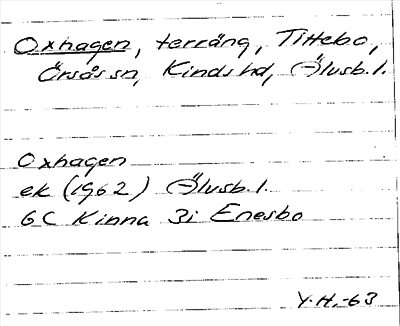 Oxhagen, terräng, Tittebo,
Örsås sn, Kinds hd, Älvsb. l.
Oxhagen
ek (1962) Älvsb. l.
6C Kinna 3i Enesbo
Y.H.-63